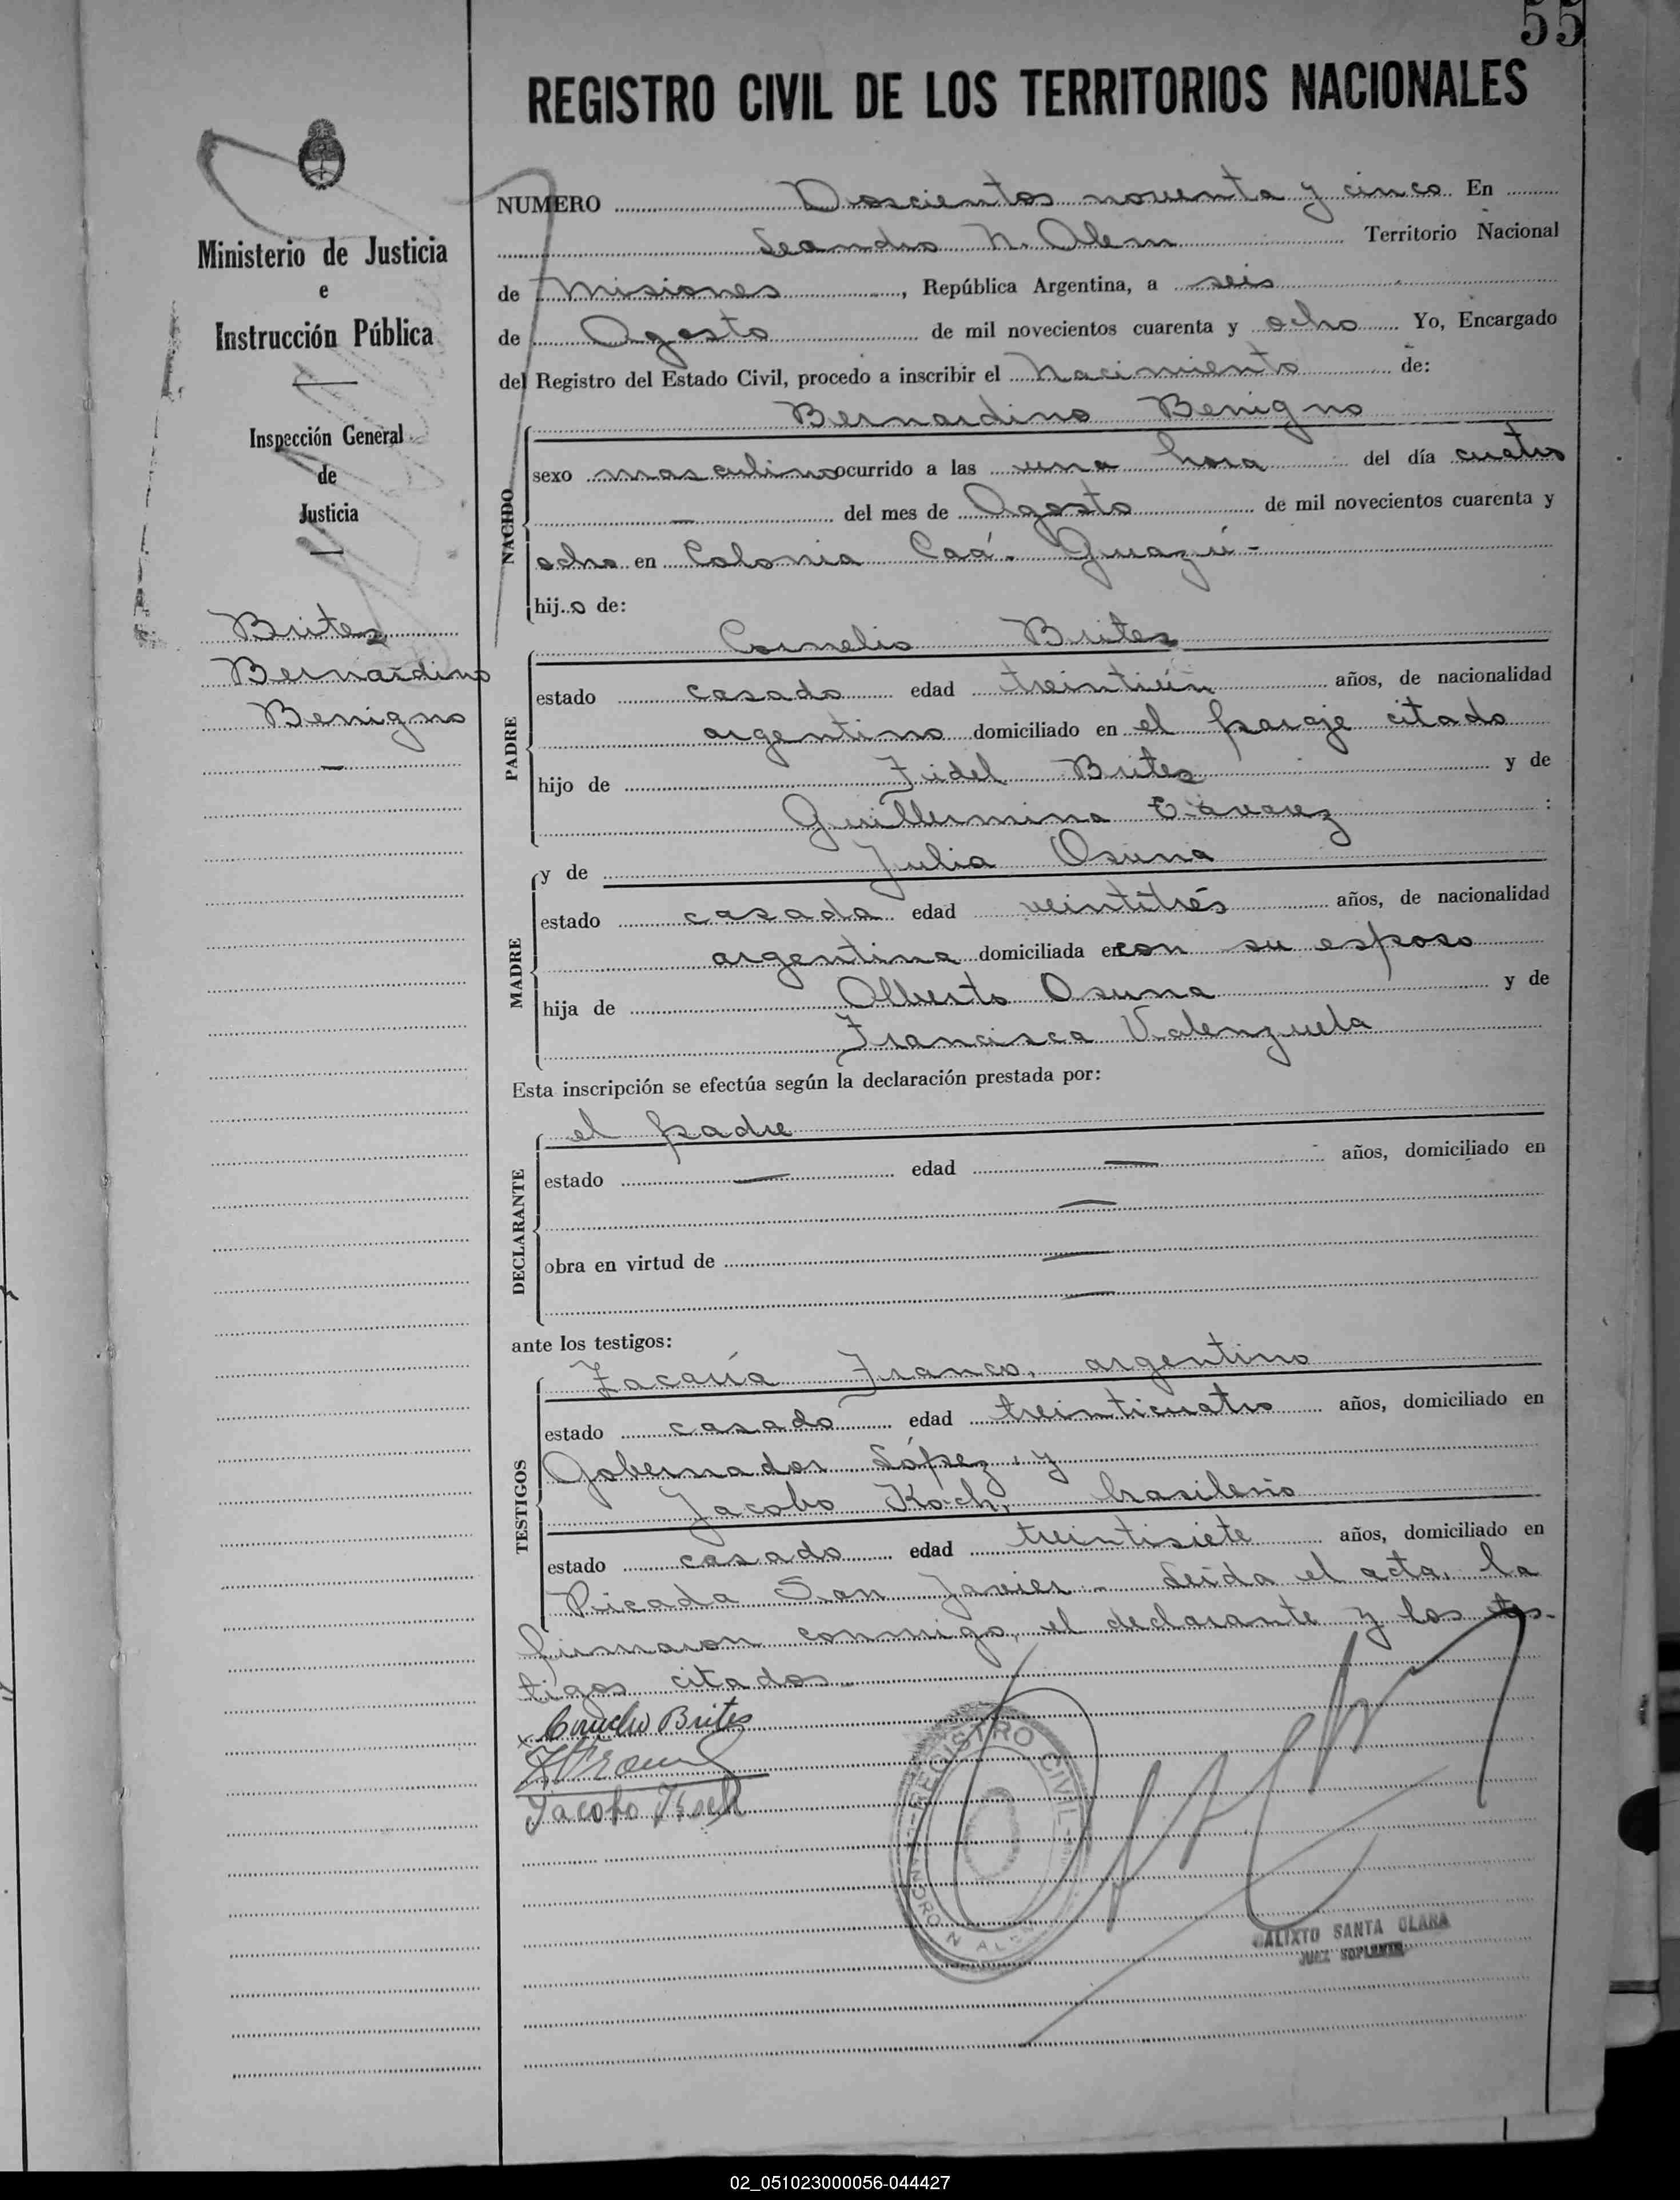 55
REGISTRO CIVIL DE LOS TERRITORIOS NACIONALES
Ministerio de Justicia
e
Instrucción Pública
Inspección General
de
Justicia
Britez
Bernardino
Benigno
NUMERO Doscientos noventa y cinco En
Leandro N. Alem Territorio Nacional
de Misiones, República Argentina, a seis
de Agosto de mil novecientos cuarenta y ocho Yo, Encargado
del Registro del Estado Civil, procedo a inscribir el Nacimiento de:
NACIDO
Bernardino Benigno
sexo masculino ocurrido a las una hora del día cuatro
— del mes de Agosto de mil novecientos cuarenta y
ocho en Colonia Caá-Guazú-
hijo de:
PADRE
Cornelio Britez
estado casado edad treintiún años, de nacionalidad
argentino domiciliado en el paraje citado
hijo de Fidel Britez y de
Guillermina :
MADRE
y de Julia Osuna
estado casada edad veintitrés años, de nacionalidad
argentina domiciliada en con su esposo
hija de Alberto Osuna y de
Francisca Valenzuela
Esta inscripción se efectúa según la declaración prestada por:
DECLARANTE
el padre
estado — edad — años, domiciliado en
—
obra en virtud de —
—
ante los testigos:
TESTIGOS
Zacaría Franco, argentino
estado casado edad treinticuatro años, domiciliado en
Gobernador López, y
Jacobo Koch, brasileño
estado casado edad treintisiete años, domiciliado en
Picada San Javier.- Leída el acta, la
firmaron conmigo, el declarante y los tes-
tigos citados.-
x Cornelio Brites
Jacobo Koch
REGISTRO CIVIL
LEANDRO N. ALEM
CALIXTO SANTA CLARA
JUEZ SUPLENTE
02_051023000056-044427